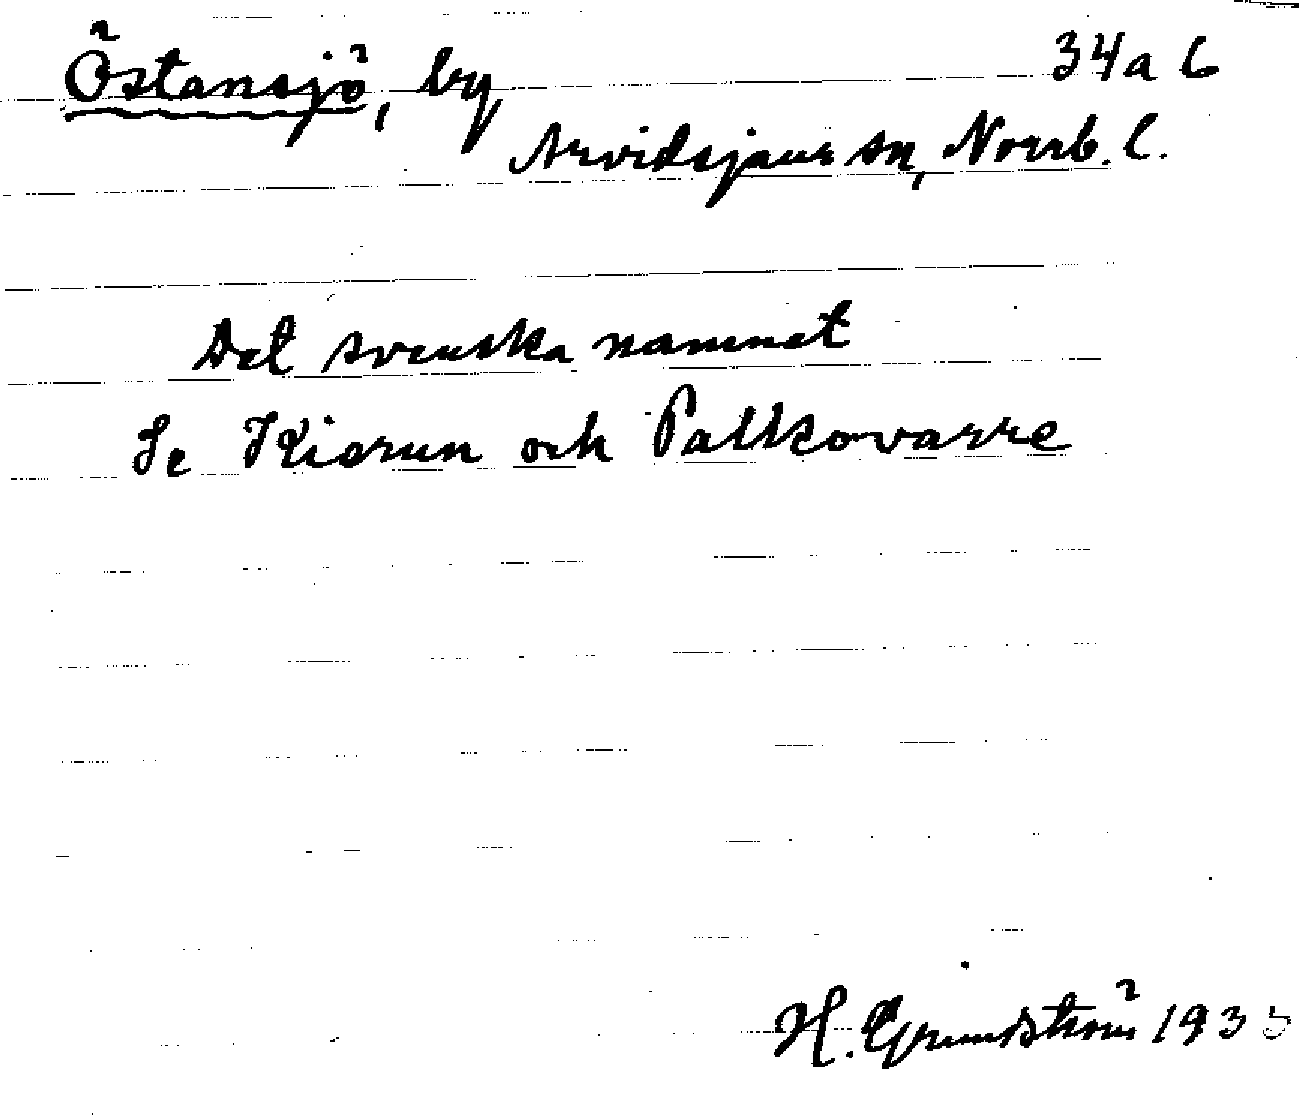 Östansjö, by 34a C
Arvidsjaur sn, Norrb. l.
Det svenska namnet
Se Kiorun och Palkovarre
H. Grundström 1935